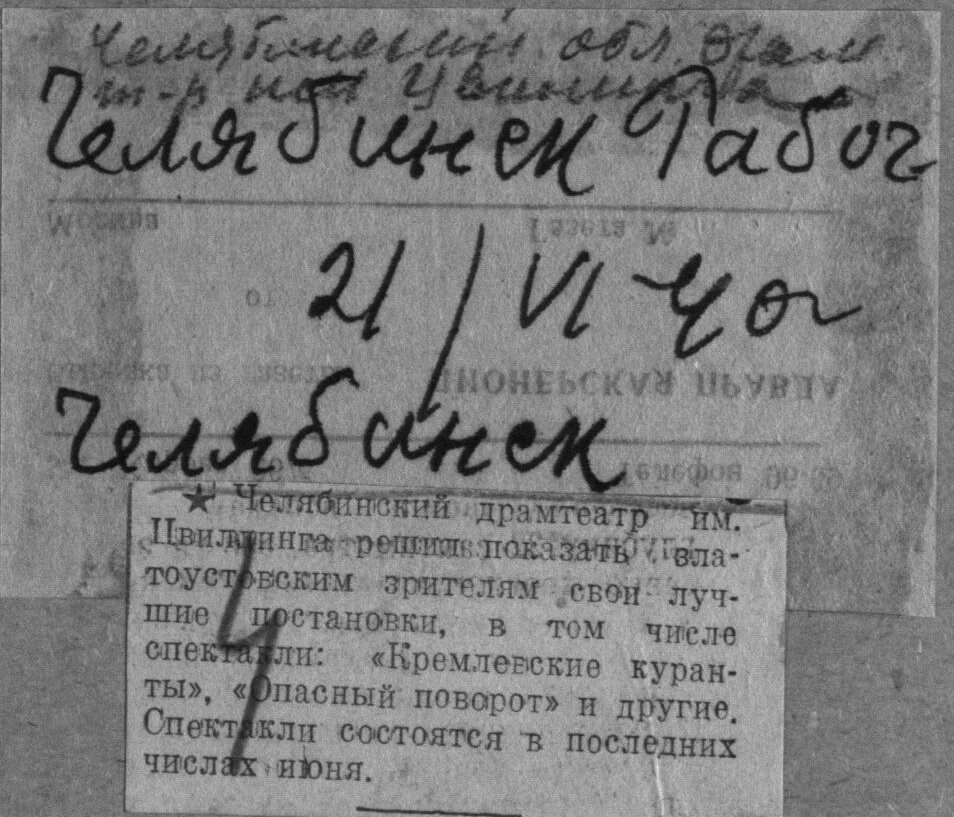 Челябинский обл. драм
т-р им Цвиллинга
Челябинск Рабоч
Москва Газета №
21/VI 40 г
от
вырезка из газеты
ПИОНЕРСКАЯ ПРАВДА
Челябинск
Телефон 96-69
★ Челябинский драмтеатр им.
Цвиллинга решил показать зла-
тоустовским зрителям свои луч-
шие постановки, в том числе
спектакли: «Кремлевские куран-
ты», «Опасный поворот» и другие.
Спектакли состоятся в последних
числах июня.
4